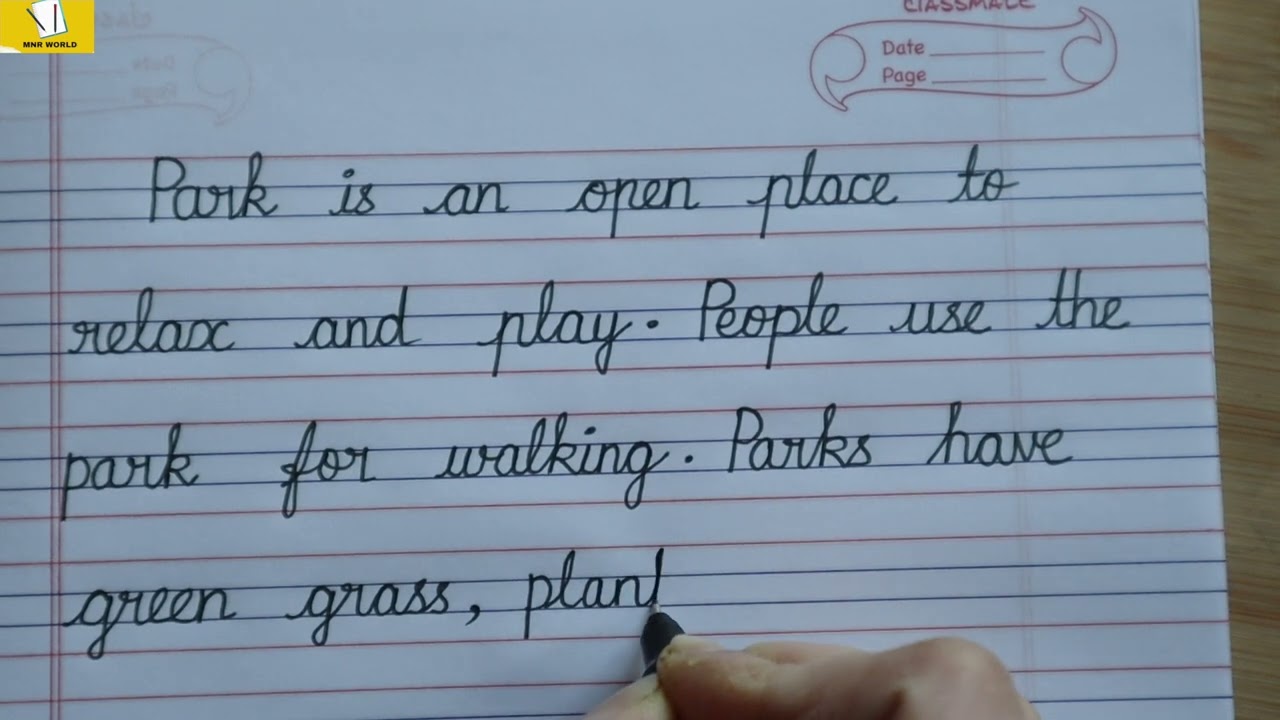 MNR WORLD
CLASSMATE
Date
Page
Park is an open place to
relax and play. People use the
park for walking. Parks have
green grass, plant